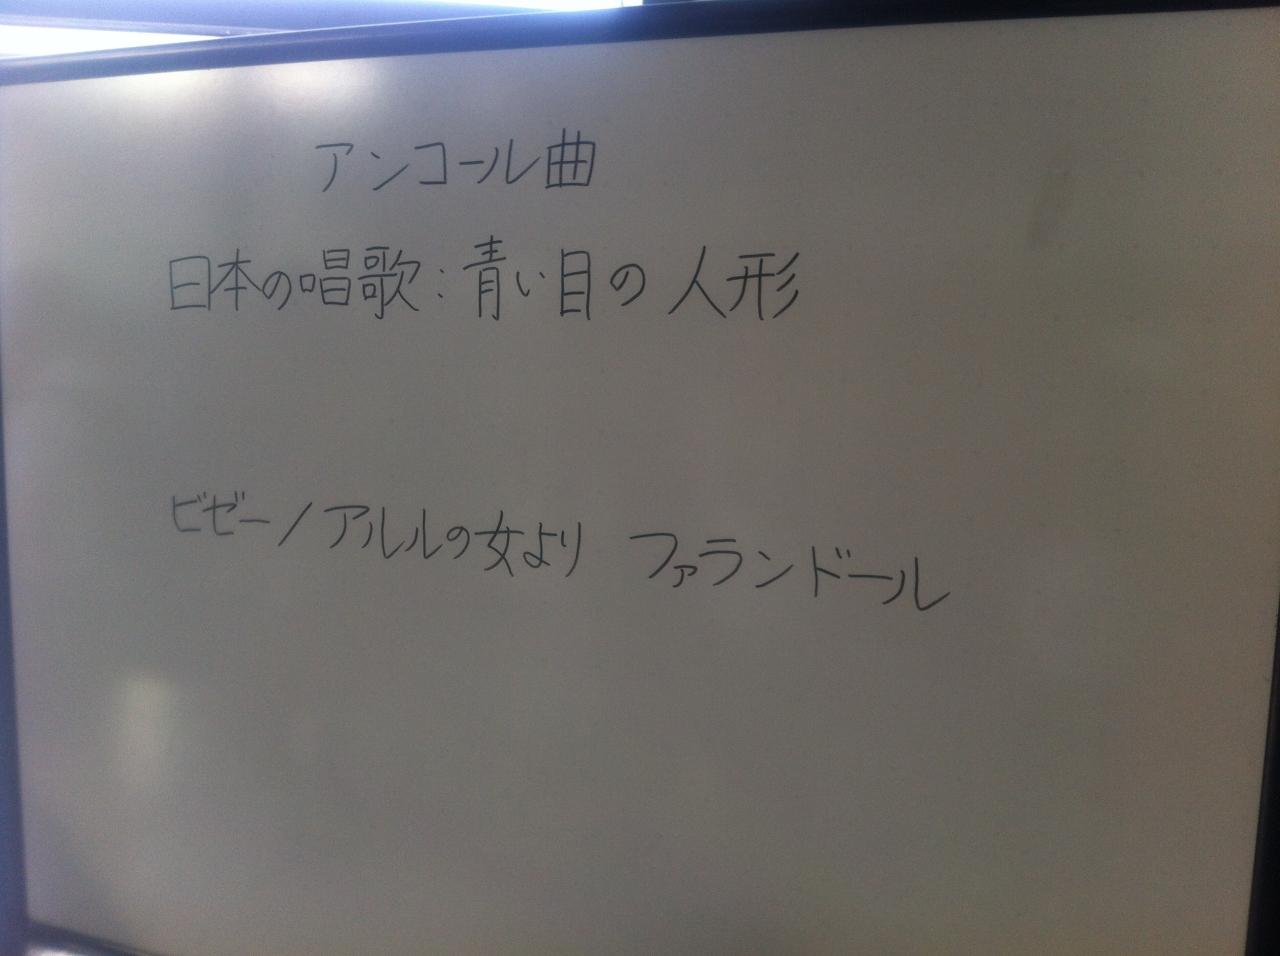 アンコール曲
日本の唱歌:青い目の人形
ビゼー/アルルの女より ファランドール